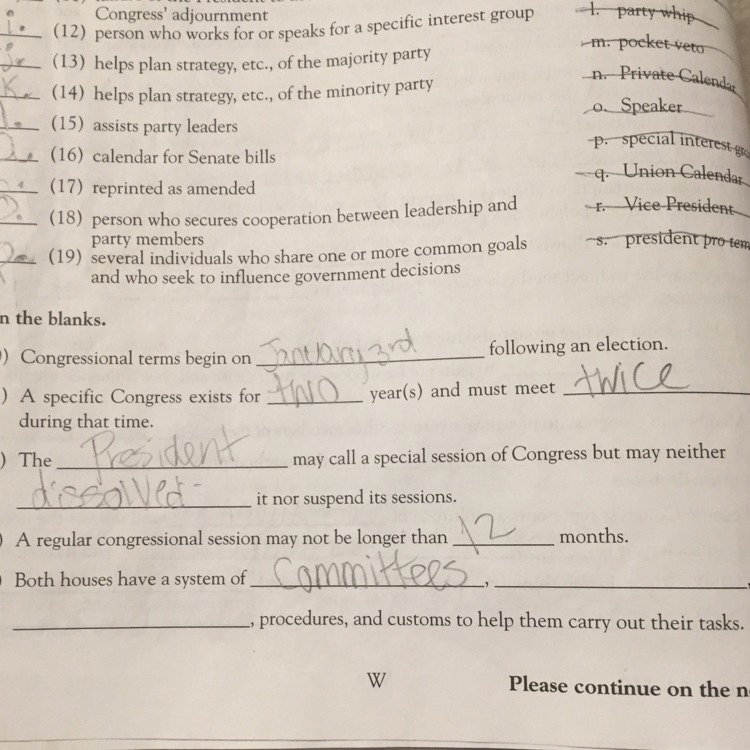 Congress' adjournment
i. (12) person who works for or speaks for a specific interest group l. party whip
(13) helps plan strategy, etc., of the majority party m. pocket veto
k. (14) helps plan strategy, etc., of the minority party n. Private Calendar
(15) assists party leaders o. Speaker
(16) calendar for Senate bills p. special interest
(17) reprinted as amended q. Union Calendar
(18) person who secures cooperation between leadership and r. Vice President
party members s. president pro tem
(19) several individuals who share one or more common goals
and who seek to influence government decisions
n the blanks.
) Congressional terms begin on January 3rd following an election.
) A specific Congress exists for two year(s) and must meet twice
during that time.
) The President may call a special session of Congress but may neither
dissolved it nor suspend its sessions.
) A regular congressional session may not be longer than 12 months.
) Both houses have a system of Committees, ,
, procedures, and customs to help them carry out their tasks.
W Please continue on the n